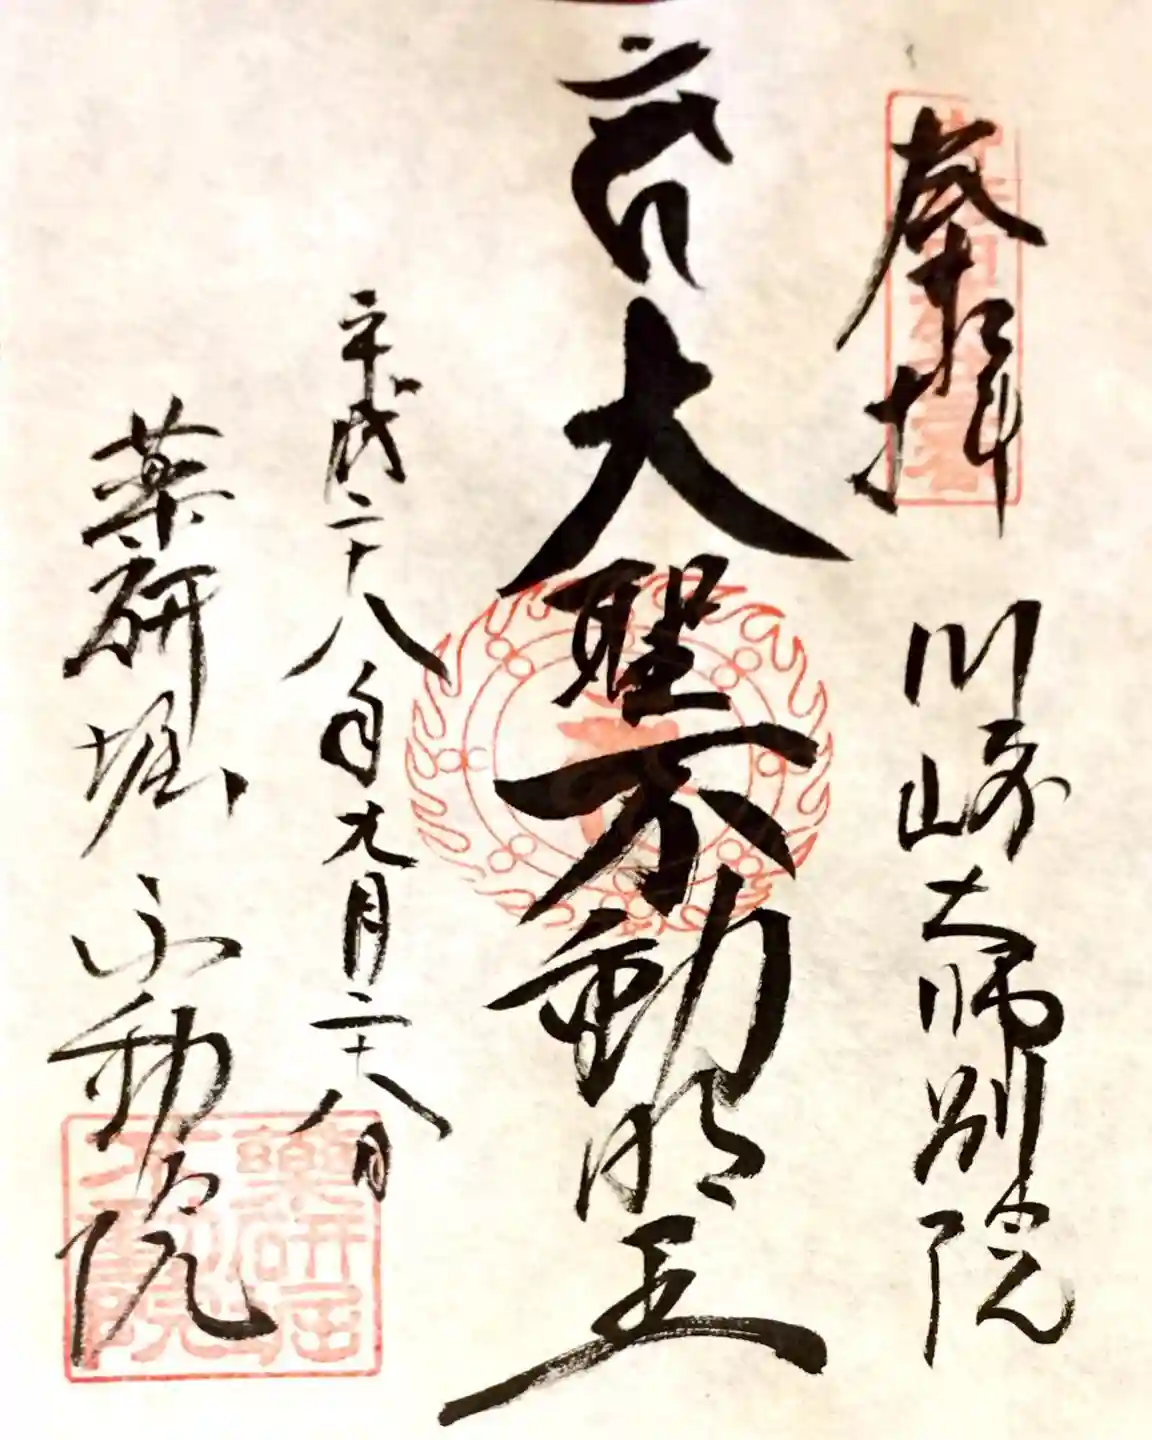 奉拝
川崎大師別院
大聖不動明王
平成二十八年九月二十八日
薬研堀不動院
薬研堀
不動院